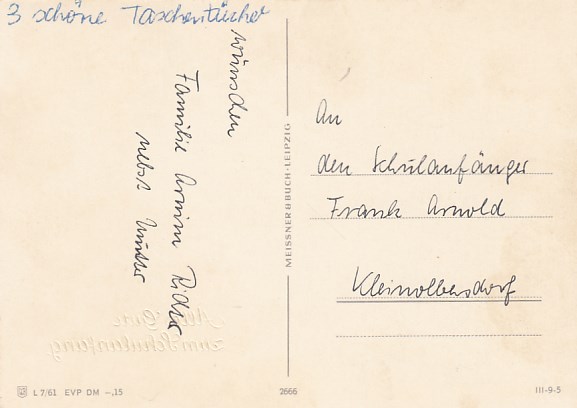 3 schöne Taschentücher
wünschen
Familie Armin
nebst Mutter
An
den Schulanfänger
Frank Arnold
Kleinolbersdorf
MEISSNER & BUCH · LEIPZIG
Alles Gute
zum Schulanfang
L 7/61 EVP DM –,15
2666
III-9-5